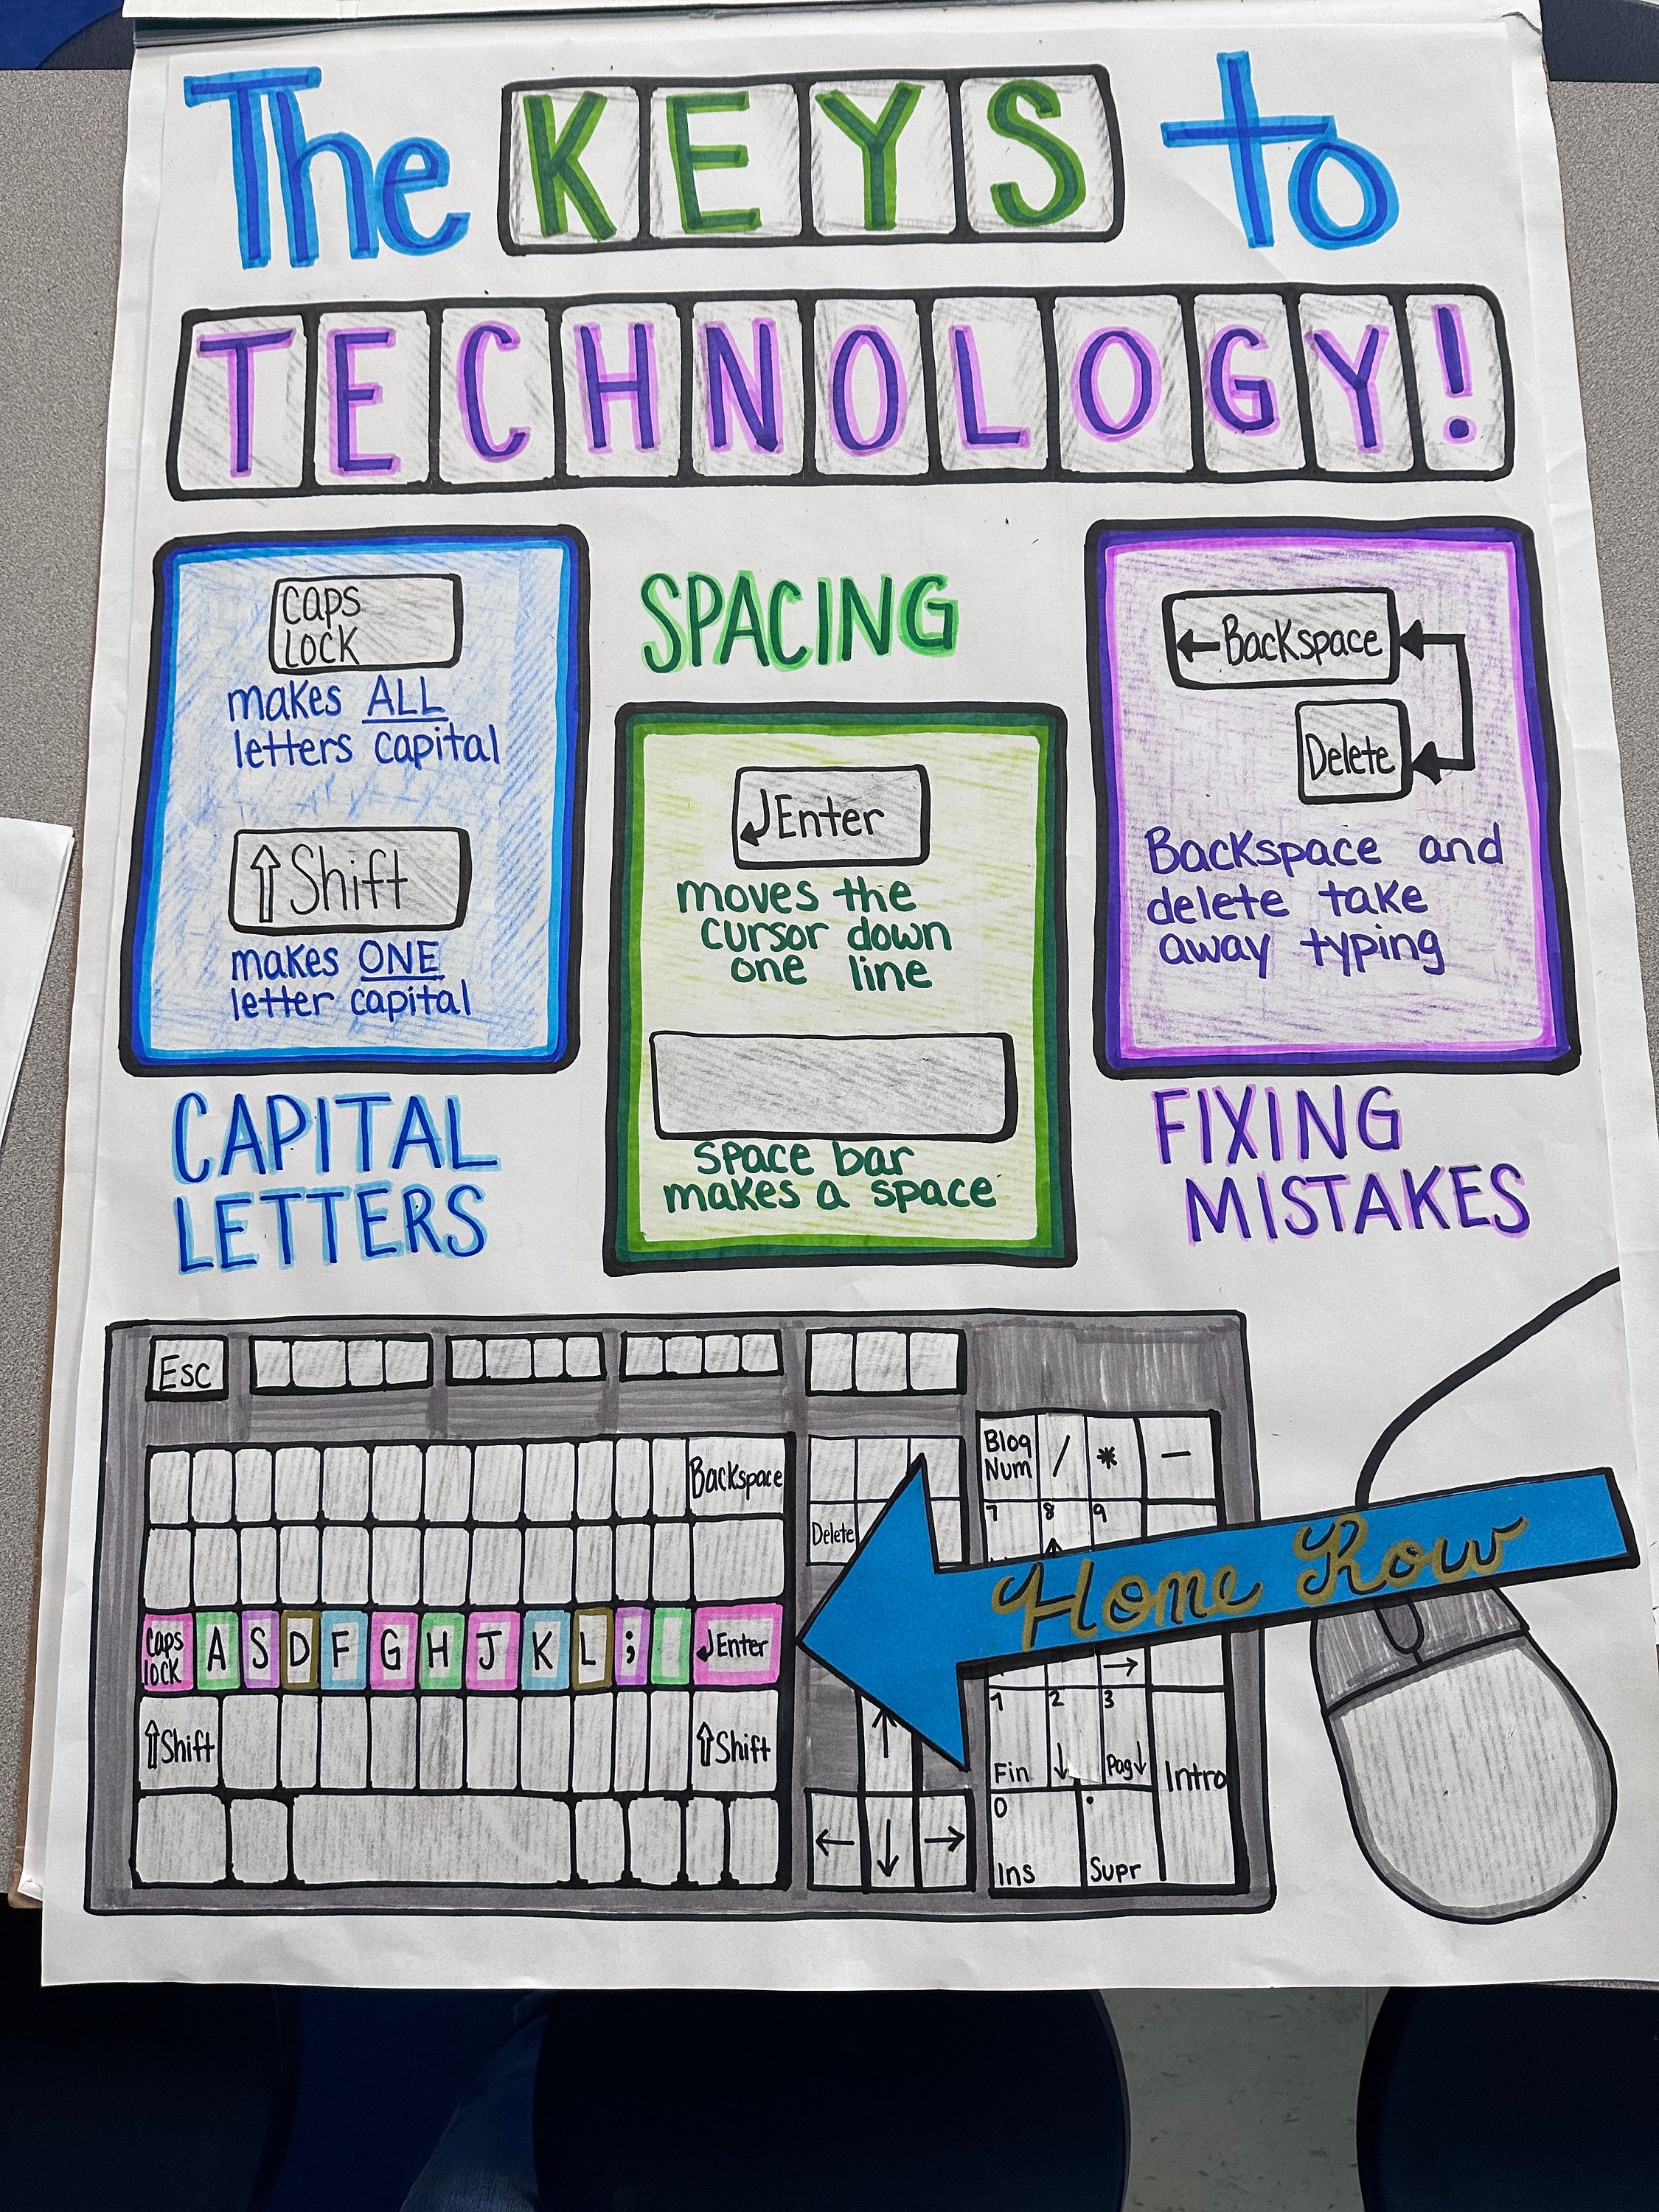 The KEYS to
TECHNOLOGY!
caps
lock
makes ALL
letters capital
Shift
makes ONE
letter capital
CAPITAL
LETTERS
SPACING
Enter
moves the
cursor down
one line
space bar
makes a space
← Backspace
Delete
Backspace and
delete take
away typing
FIXING
MISTAKES
Esc
Backspace
Delete
Bloq
Num
/
*
—
7
8
9
Home Row
caps
lock
A S D F G H J K L ;
Enter
→
Shift
Shift
↑
1
2
3
Fin
↓
Pag↓
Intro
← ↓ →
0
Ins
.
Supr